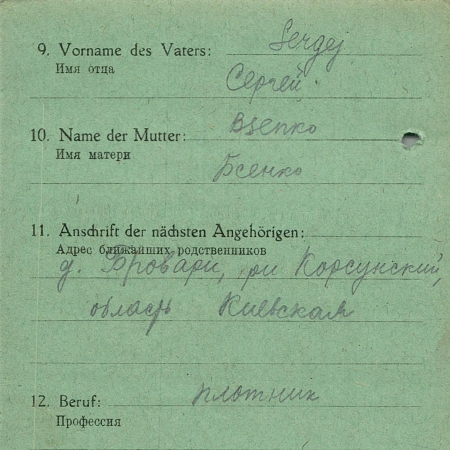 9. Vorname des Vaters: Sergej
Имя отца
Сергей.
10. Name der Mutter: Bsenko
Имя матери
Бсенко
11. Anschrift der nächsten Angehörigen:
Адрес ближайших родственников
д. Бровари, Корсунский,
область Киевская
12. Beruf: плотник
Профессия